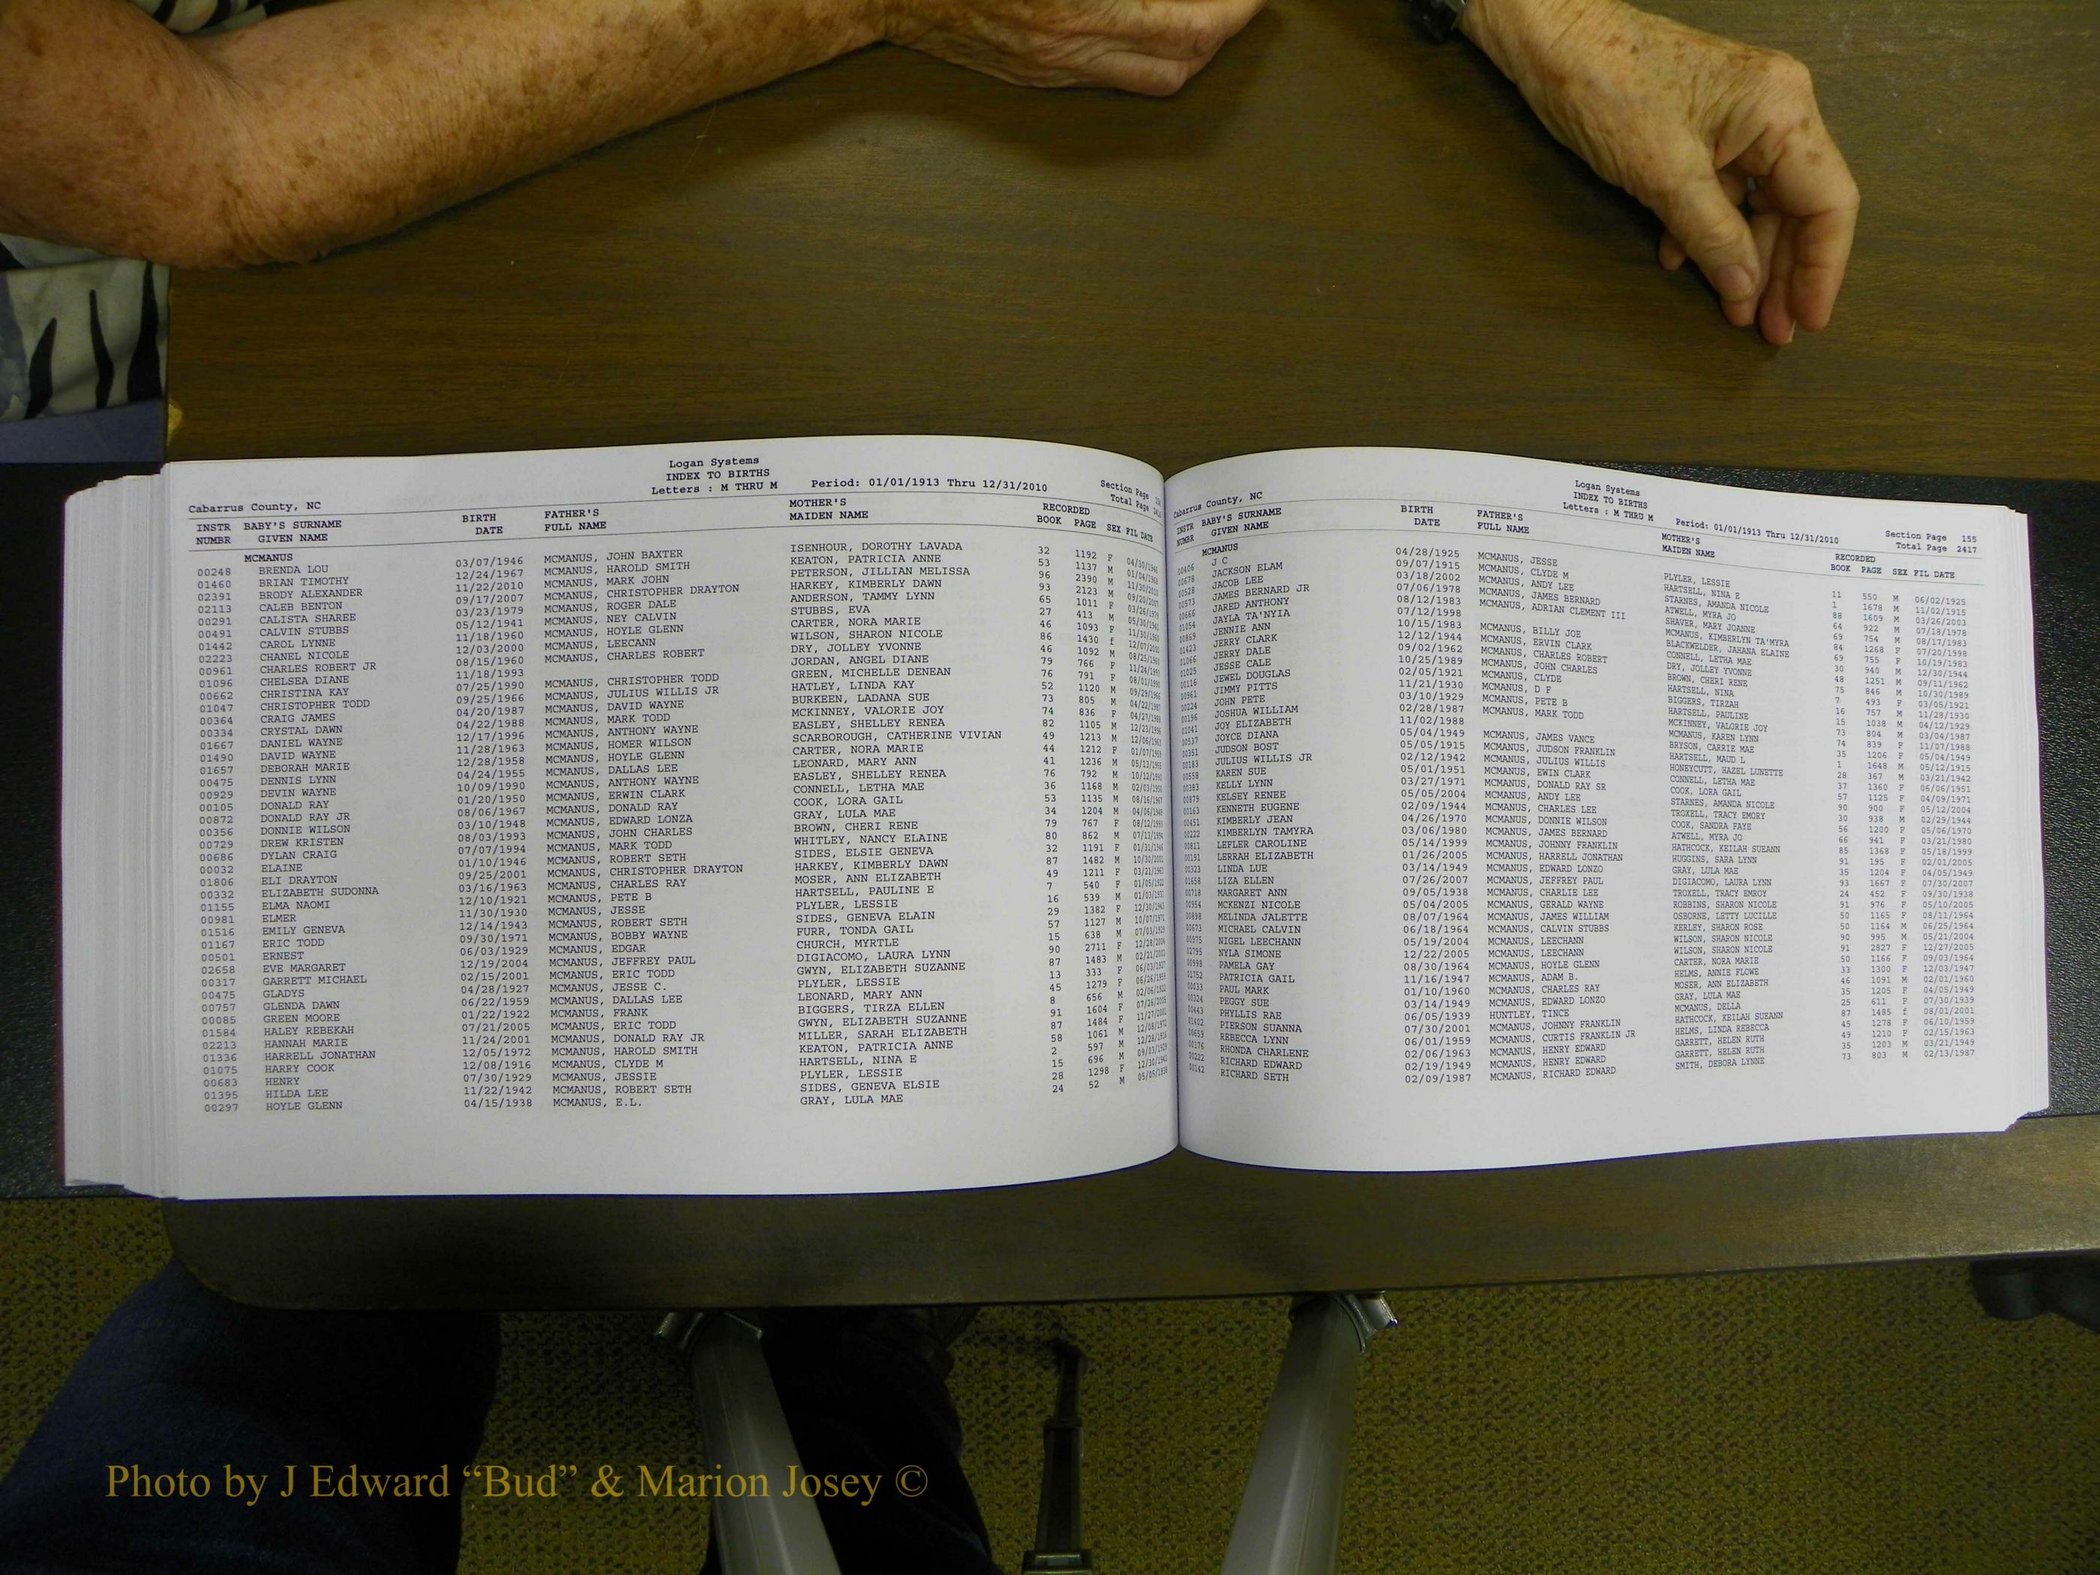 Logan Systems
INDEX TO BIRTHS
Letters : M THRU M Period: 01/01/1913 Thru 12/31/2010
Cabarrus County, NC Section Page
Total Page
INSTR BABY'S SURNAME BIRTH FATHER'S MOTHER'S RECORDED
NUMBR GIVEN NAME DATE FULL NAME MAIDEN NAME BOOK PAGE SEX FIL DATE
MCMANUS
00248 BRENDA LOU 03/07/1946 MCMANUS, JOHN BAXTER ISENHOUR, DOROTHY LAVADA 32 1192
01460 BRIAN TIMOTHY 12/24/1967 MCMANUS, HAROLD SMITH KEATON, PATRICIA ANNE 53 1137
02391 BRODY ALEXANDER 11/22/2010 MCMANUS, MARK JOHN PETERSON, JILLIAN MELISSA 96 2390
02113 CALEB BENTON 09/17/2007 MCMANUS, CHRISTOPHER DRAYTON HARKEY, KIMBERLY DAWN 93 2123
00291 CALISTA SHAREE 03/23/1979 MCMANUS, ROGER DALE ANDERSON, TAMMY LYNN 65 1011
00491 CALVIN STUBBS 05/12/1941 MCMANUS, NEY CALVIN STUBBS, EVA 27 413
01442 CAROL LYNNE 11/18/1960 MCMANUS, HOYLE GLENN CARTER, NORA MARIE 46 1093
02223 CHANEL NICOLE 12/03/2000 MCMANUS, LEECANN WILSON, SHARON NICOLE 86 1430
00961 CHARLES ROBERT JR 08/15/1960 MCMANUS, CHARLES ROBERT DRY, JOLLEY YVONNE 46 1092
01096 CHELSEA DIANE 11/18/1993 JORDAN, ANGEL DIANE 79 766
00662 CHRISTINA KAY 07/25/1990 MCMANUS, CHRISTOPHER TODD GREEN, MICHELLE DENEAN 76 791
01047 CHRISTOPHER TODD 09/25/1966 MCMANUS, JULIUS WILLIS JR HATLEY, LINDA KAY 52 1120
00364 CRAIG JAMES 04/20/1987 MCMANUS, DAVID WAYNE BURKEEN, LADANA SUE 73 805
00334 CRYSTAL DAWN 04/22/1988 MCMANUS, MARK TODD MCKINNEY, VALORIE JOY 74 836
01667 DANIEL WAYNE 12/17/1996 MCMANUS, ANTHONY WAYNE EASLEY, SHELLEY RENEA 82 1105
01490 DAVID WAYNE 11/28/1963 MCMANUS, HOMER WILSON SCARBOROUGH, CATHERINE VIVIAN 49 1213
01657 DEBORAH MARIE 12/28/1958 MCMANUS, HOYLE GLENN CARTER, NORA MARIE 44 1212
00475 DENNIS LYNN 04/24/1955 MCMANUS, DALLAS LEE LEONARD, MARY ANN 41 1236
00929 DEVIN WAYNE 10/09/1990 MCMANUS, ANTHONY WAYNE EASLEY, SHELLEY RENEA 76 792
00105 DONALD RAY 01/20/1950 MCMANUS, ERWIN CLARK CONNELL, LETHA MAE 36 1168
00872 DONALD RAY JR 08/06/1967 MCMANUS, DONALD RAY COOK, LORA GAIL 53 1135
00356 DONNIE WILSON 03/10/1948 MCMANUS, EDWARD LONZA GRAY, LULA MAE 34 1204
00729 DREW KRISTEN 08/03/1993 MCMANUS, JOHN CHARLES BROWN, CHERI RENE 79 767
00686 DYLAN CRAIG 07/07/1994 MCMANUS, MARK TODD WHITLEY, NANCY ELAINE 80 862
00032 ELAINE 01/10/1946 MCMANUS, ROBERT SETH SIDES, ELSIE GENEVA 32 1191
01806 ELI DRAYTON 09/25/2001 MCMANUS, CHRISTOPHER DRAYTON HARKEY, KIMBERLY DAWN 87 1482
00332 ELIZABETH SUDONNA 03/16/1963 MCMANUS, CHARLES RAY MOSER, ANN ELIZABETH 49 1211
01155 ELMA NAOMI 12/10/1921 MCMANUS, PETE B HARTSELL, PAULINE E 7 540
00981 ELMER 11/30/1930 MCMANUS, JESSE PLYLER, LESSIE 16 539
01516 EMILY GENEVA 12/14/1943 MCMANUS, ROBERT SETH SIDES, GENEVA ELAIN 29 1382
01167 ERIC TODD 09/30/1971 MCMANUS, BOBBY WAYNE FURR, TONDA GAIL 57 1127
00501 ERNEST 06/03/1929 MCMANUS, EDGAR CHURCH, MYRTLE 15 638
02658 EVE MARGARET 12/19/2004 MCMANUS, JEFFREY PAUL DIGIACOMO, LAURA LYNN 90 2711
00317 GARRETT MICHAEL 02/15/2001 MCMANUS, ERIC TODD GWYN, ELIZABETH SUZANNE 87 1483
00475 GLADYS 04/28/1927 MCMANUS, JESSE C. PLYLER, LESSIE 13 333
00757 GLENDA DAWN 06/22/1959 MCMANUS, DALLAS LEE LEONARD, MARY ANN 45 1279
00085 GREEN MOORE 01/22/1922 MCMANUS, FRANK BIGGERS, TIRZA ELLEN 8 656
01584 HALEY REBEKAH 07/21/2005 MCMANUS, ERIC TODD GWYN, ELIZABETH SUZANNE 91 1604
02213 HANNAH MARIE 11/24/2001 MCMANUS, DONALD RAY JR MILLER, SARAH ELIZABETH 87 1484
01336 HARRELL JONATHAN 12/05/1972 MCMANUS, HAROLD SMITH KEATON, PATRICIA ANNE 58 1061
01075 HARRY COOK 12/08/1916 MCMANUS, CLYDE M HARTSELL, NINA E 2 597
00683 HENRY 07/30/1929 MCMANUS, JESSIE PLYLER, LESSIE 15 696
01395 HILDA LEE 11/22/1942 MCMANUS, ROBERT SETH SIDES, GENEVA ELSIE 28 1298
00297 HOYLE GLENN 04/15/1938 MCMANUS, E.L. GRAY, LULA MAE 24 52
Logan Systems
INDEX TO BIRTHS
Letters : M THRU M Period: 01/01/1913 Thru 12/31/2010
Cabarrus County, NC Section Page 155
Total Page 2417
INSTR BABY'S SURNAME BIRTH FATHER'S MOTHER'S RECORDED
NUMBR GIVEN NAME DATE FULL NAME MAIDEN NAME BOOK PAGE SEX FIL DATE
MCMANUS
00406 J C 04/28/1925 MCMANUS, JESSE PLYLER, LESSIE 11 550 M 06/02/1925
00678 JACKSON ELAM 09/07/1915 MCMANUS, CLYDE M HARTSELL, NINA E 1 1678 M 11/02/1915
00528 JACOB LEE 03/18/2002 MCMANUS, ANDY LEE STARNES, AMANDA NICOLE 88 1609 M 03/26/2003
00573 JAMES BERNARD JR 07/06/1978 MCMANUS, JAMES BERNARD ATWELL, MYRA JO 64 922 M 07/18/1978
00666 JARED ANTHONY 08/12/1983 MCMANUS, ADRIAN CLEMENT III SHAVER, MARY JOANNE 69 754 M 08/17/1983
01054 JAYLA TA'NYIA 07/12/1998 MCMANUS, KIMBERLYN TA'MYRA 84 1268 F 07/20/1998
00869 JENNIE ANN 10/15/1983 MCMANUS, BILLY JOE BLACKWELDER, JAHANA ELAINE 69 755 F 10/19/1983
01423 JERRY CLARK 12/12/1944 MCMANUS, ERVIN CLARK CONNELL, LETHA MAE 30 940 M 12/30/1944
01066 JERRY DALE 09/02/1962 MCMANUS, CHARLES ROBERT DRY, JOLLEY YVONNE 48 1251 M 09/11/1962
01025 JESSE CALE 10/25/1989 MCMANUS, JOHN CHARLES BROWN, CHERI RENE 75 846 M 10/30/1989
00116 JEWEL DOUGLAS 02/05/1921 MCMANUS, CLYDE HARTSELL, NINA 7 493 F 03/05/1921
00961 JIMMY PITTS 11/21/1930 MCMANUS, D F BIGGERS, TIRZAH 16 757 M 11/28/1930
00224 JOHN PETE 03/10/1929 MCMANUS, PETE B HARTSELL, PAULINE 15 1038 M 04/12/1929
00196 JOSHUA WILLIAM 02/28/1987 MCMANUS, MARK TODD MCKINNEY, VALORIE JOY 73 804 M 03/04/1987
01041 JOY ELIZABETH 11/02/1988 MCMANUS, KAREN LYNN 74 839 F 11/07/1988
00537 JOYCE DIANA 05/04/1949 MCMANUS, JAMES VANCE BRYSON, CARRIE MAE 35 1206 F 05/04/1949
00351 JUDSON BOST 05/05/1915 MCMANUS, JUDSON FRANKLIN HARTSELL, MAUD L 1 1648 M 05/12/1915
00183 JULIUS WILLIS JR 02/12/1942 MCMANUS, JULIUS WILLIS HONEYCUTT, HAZEL LUNETTE 28 367 M 03/21/1942
00558 KAREN SUE 05/01/1951 MCMANUS, EWIN CLARK CONNELL, LETHA MAE 37 1360 F 06/06/1951
00383 KELLY LYNN 03/27/1971 MCMANUS, DONALD RAY SR COOK, LORA GAIL 57 1125 F 04/09/1971
00879 KELSEY RENEE 05/05/2004 MCMANUS, ANDY LEE STARNES, AMANDA NICOLE 90 900 F 05/12/2004
00163 KENNETH EUGENE 02/09/1944 MCMANUS, CHARLES LEE TROXELL, TRACY EMORY 30 938 M 02/29/1944
00451 KIMBERLY JEAN 04/26/1970 MCMANUS, DONNIE WILSON COOK, SANDRA FAYE 56 1200 F 05/06/1970
00222 KIMBERLYN TAMYRA 03/06/1980 MCMANUS, JAMES BERNARD ATWELL, MYRA JO 66 941 F 03/21/1980
00811 LEFLER CAROLINE 05/14/1999 MCMANUS, JOHNNY FRANKLIN HATHCOCK, KEILAH SUEANN 85 1368 F 05/18/1999
00191 LERRAH ELIZABETH 01/26/2005 MCMANUS, HARRELL JONATHAN HUGGINS, SARA LYNN 91 195 F 02/01/2005
00323 LINDA LUE 03/14/1949 MCMANUS, EDWARD LONZO GRAY, LULA MAE 35 1204 F 04/05/1949
01658 LIZA ELLEN 07/26/2007 MCMANUS, JEFFREY PAUL DIGIACOMO, LAURA LYNN 93 1667 F 07/30/2007
00718 MARGARET ANN 09/05/1938 MCMANUS, CHARLIE LEE TROXELL, TRACY EMROY 24 452 F 09/30/1938
00954 MCKENZI NICOLE 05/04/2005 MCMANUS, GERALD WAYNE ROBBINS, SHARON NICOLE 91 976 F 05/10/2005
00898 MELINDA JALETTE 08/07/1964 MCMANUS, JAMES WILLIAM OSBORNE, LETTY LUCILLE 50 1165 F 08/11/1964
00673 MICHAEL CALVIN 06/18/1964 MCMANUS, CALVIN STUBBS KERLEY, SHARON ROSE 50 1164 M 06/25/1964
00975 NIGEL LEECHANN 05/19/2004 MCMANUS, LEECHANN WILSON, SHARON NICOLE 90 995 M 05/21/2004
02795 NYLA SIMONE 12/22/2005 MCMANUS, LEECHANN WILSON, SHARON NICOLE 91 2827 F 12/27/2005
00998 PAMELA GAY 08/30/1964 MCMANUS, HOYLE GLENN CARTER, NORA MARIE 50 1166 F 09/03/1964
01752 PATRICIA GAIL 11/16/1947 MCMANUS, ADAM B. HELMS, ANNIE FLOWE 33 1300 F 12/03/1947
00033 PAUL MARK 01/10/1960 MCMANUS, CHARLES RAY MOSER, ANN ELIZABETH 46 1091 M 02/01/1960
00324 PEGGY SUE 03/14/1949 MCMANUS, EDWARD LONZO GRAY, LULA MAE 35 1205 F 04/05/1949
00443 PHYLLIS RAE 06/05/1939 HUNTLEY, TINCE MCMANUS, DELLA 25 611 F 07/30/1939
01402 PIERSON SUANNA 07/30/2001 MCMANUS, JOHNNY FRANKLIN HATHCOCK, KEILAH SUEANN 87 1485 f 08/01/2001
00659 REBECCA LYNN 06/01/1959 MCMANUS, CURTIS FRANKLIN JR HELMS, LINDA REBECCA 45 1278 F 06/10/1959
00176 RHONDA CHARLENE 02/06/1963 MCMANUS, HENRY EDWARD GARRETT, HELEN RUTH 49 1210 F 02/15/1963
00222 RICHARD EDWARD 02/19/1949 MCMANUS, HENRY EDWARD GARRETT, HELEN RUTH 35 1203 M 03/21/1949
00142 RICHARD SETH 02/09/1987 MCMANUS, RICHARD EDWARD SMITH, DEBORA LYNNE 73 803 M 02/13/1987
Photo by J Edward “Bud” & Marion Josey ©